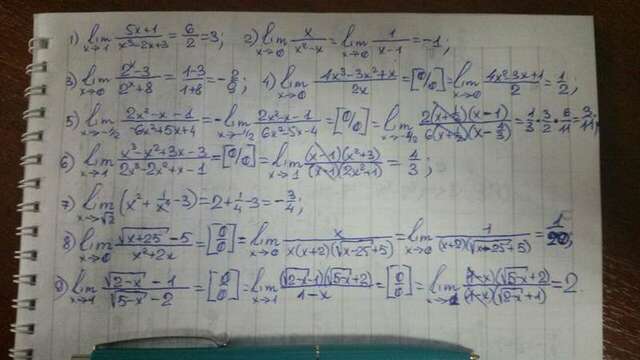 1) lim x→1 (5x+1)/(x³-2x+3) = 6/2 = 3; 2) lim x→0 x/(x²-x) = lim x→0 1/(x-1) = -1;
3) lim x→0 (2ˣ-3)/(2ˣ+8) = (1-3)/(1+8) = -2/9; 4) lim x→0 (4x³-3x²+x)/2x = [0/0] = lim x→0 (4x²-3x+1)/2 = 1/2;
5) lim x→-1/2 (2x²-x-1)/(-6x²+5x+4) = -lim x→-1/2 (2x²-x-1)/(6x²-5x-4) = [0/0] = lim x→-1/2
6) lim x→1 (x³-x²+3x-3)/(2x³-2x²+x-1) = [0/0] = lim x→1 (x-1)(x²+3)/(x-1)(2x²+1) = 4/3;
7) lim x→√2 (x²+1/x⁴-3) = 2+1/4-3 = -3/4;
8) lim x→0 (√(x+25)-5)/(x²+2x) = [0/0] = lim x→0 x/(x(x+2)(√(x+25)+5)) = lim x→0 1/((x+2)(√(x+25)+5)) = 1/20;
9) lim x→1 (√(2-x)-1)/(√(5-x)-2) = [0/0] = lim x→1 (√(2-x)-1)(√(5-x)+2)/(1-x) = [0/0] = lim x→1 (1-x)(√(5-x)+2)/(1-x)(√(2-x)+1) = 2